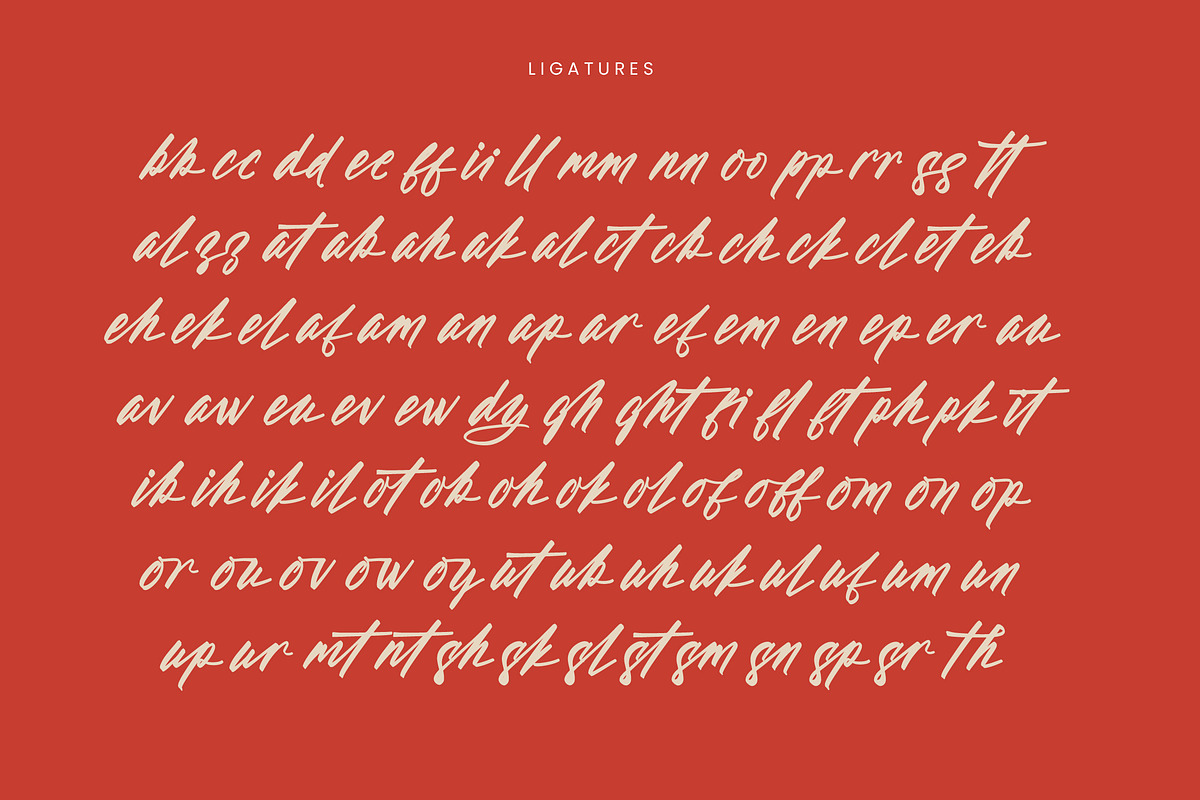 LIGATURES
bb cc dd ee ff ii ll mm nn oo pp rr ss tt
al zz at ab ah ak al ct cb ch ck cl et eb
eh ek el af am an ap ar ef em en ep er au
av aw eu ev ew dy gh ght fi fl ft ph pk it
ib ih ik il ot ob oh ok ol of off om on op
or ou ov ow oy ut ub uh uk ul uf um un
up ur mt nt sh sk sl st sm sn sp sr th